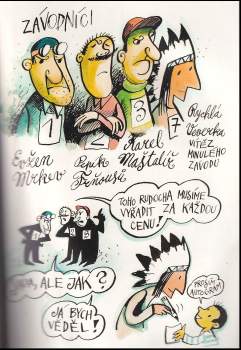 ZÁVODNÍCI
1
2
3
7
Evžen
Mrkev
Pepík
Trňousů
Karel
Maštalíř
Rychlá
Veverka
VÍTĚZ
MINULÉHO
ZÁVODU
TOHO RUDOCHA MUSÍME
VYŘADIT ZA KAŽDOU
CENU!
ALE JAK?
JÁ BYCH
VĚDĚL!
PROSÍM
AUTOGRAM